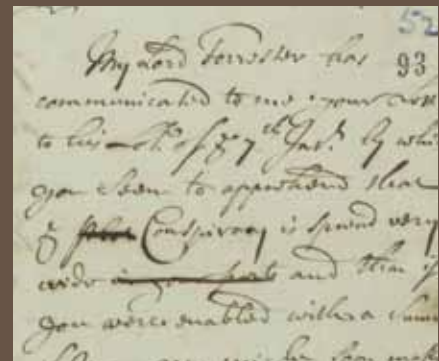 52
My Lord Forrester has 93
communicated to me your
to his of ye 7th Jany. by
you seem to apprehend that
ye Conspiracy is spread very
wide and that if
you were enabled with a